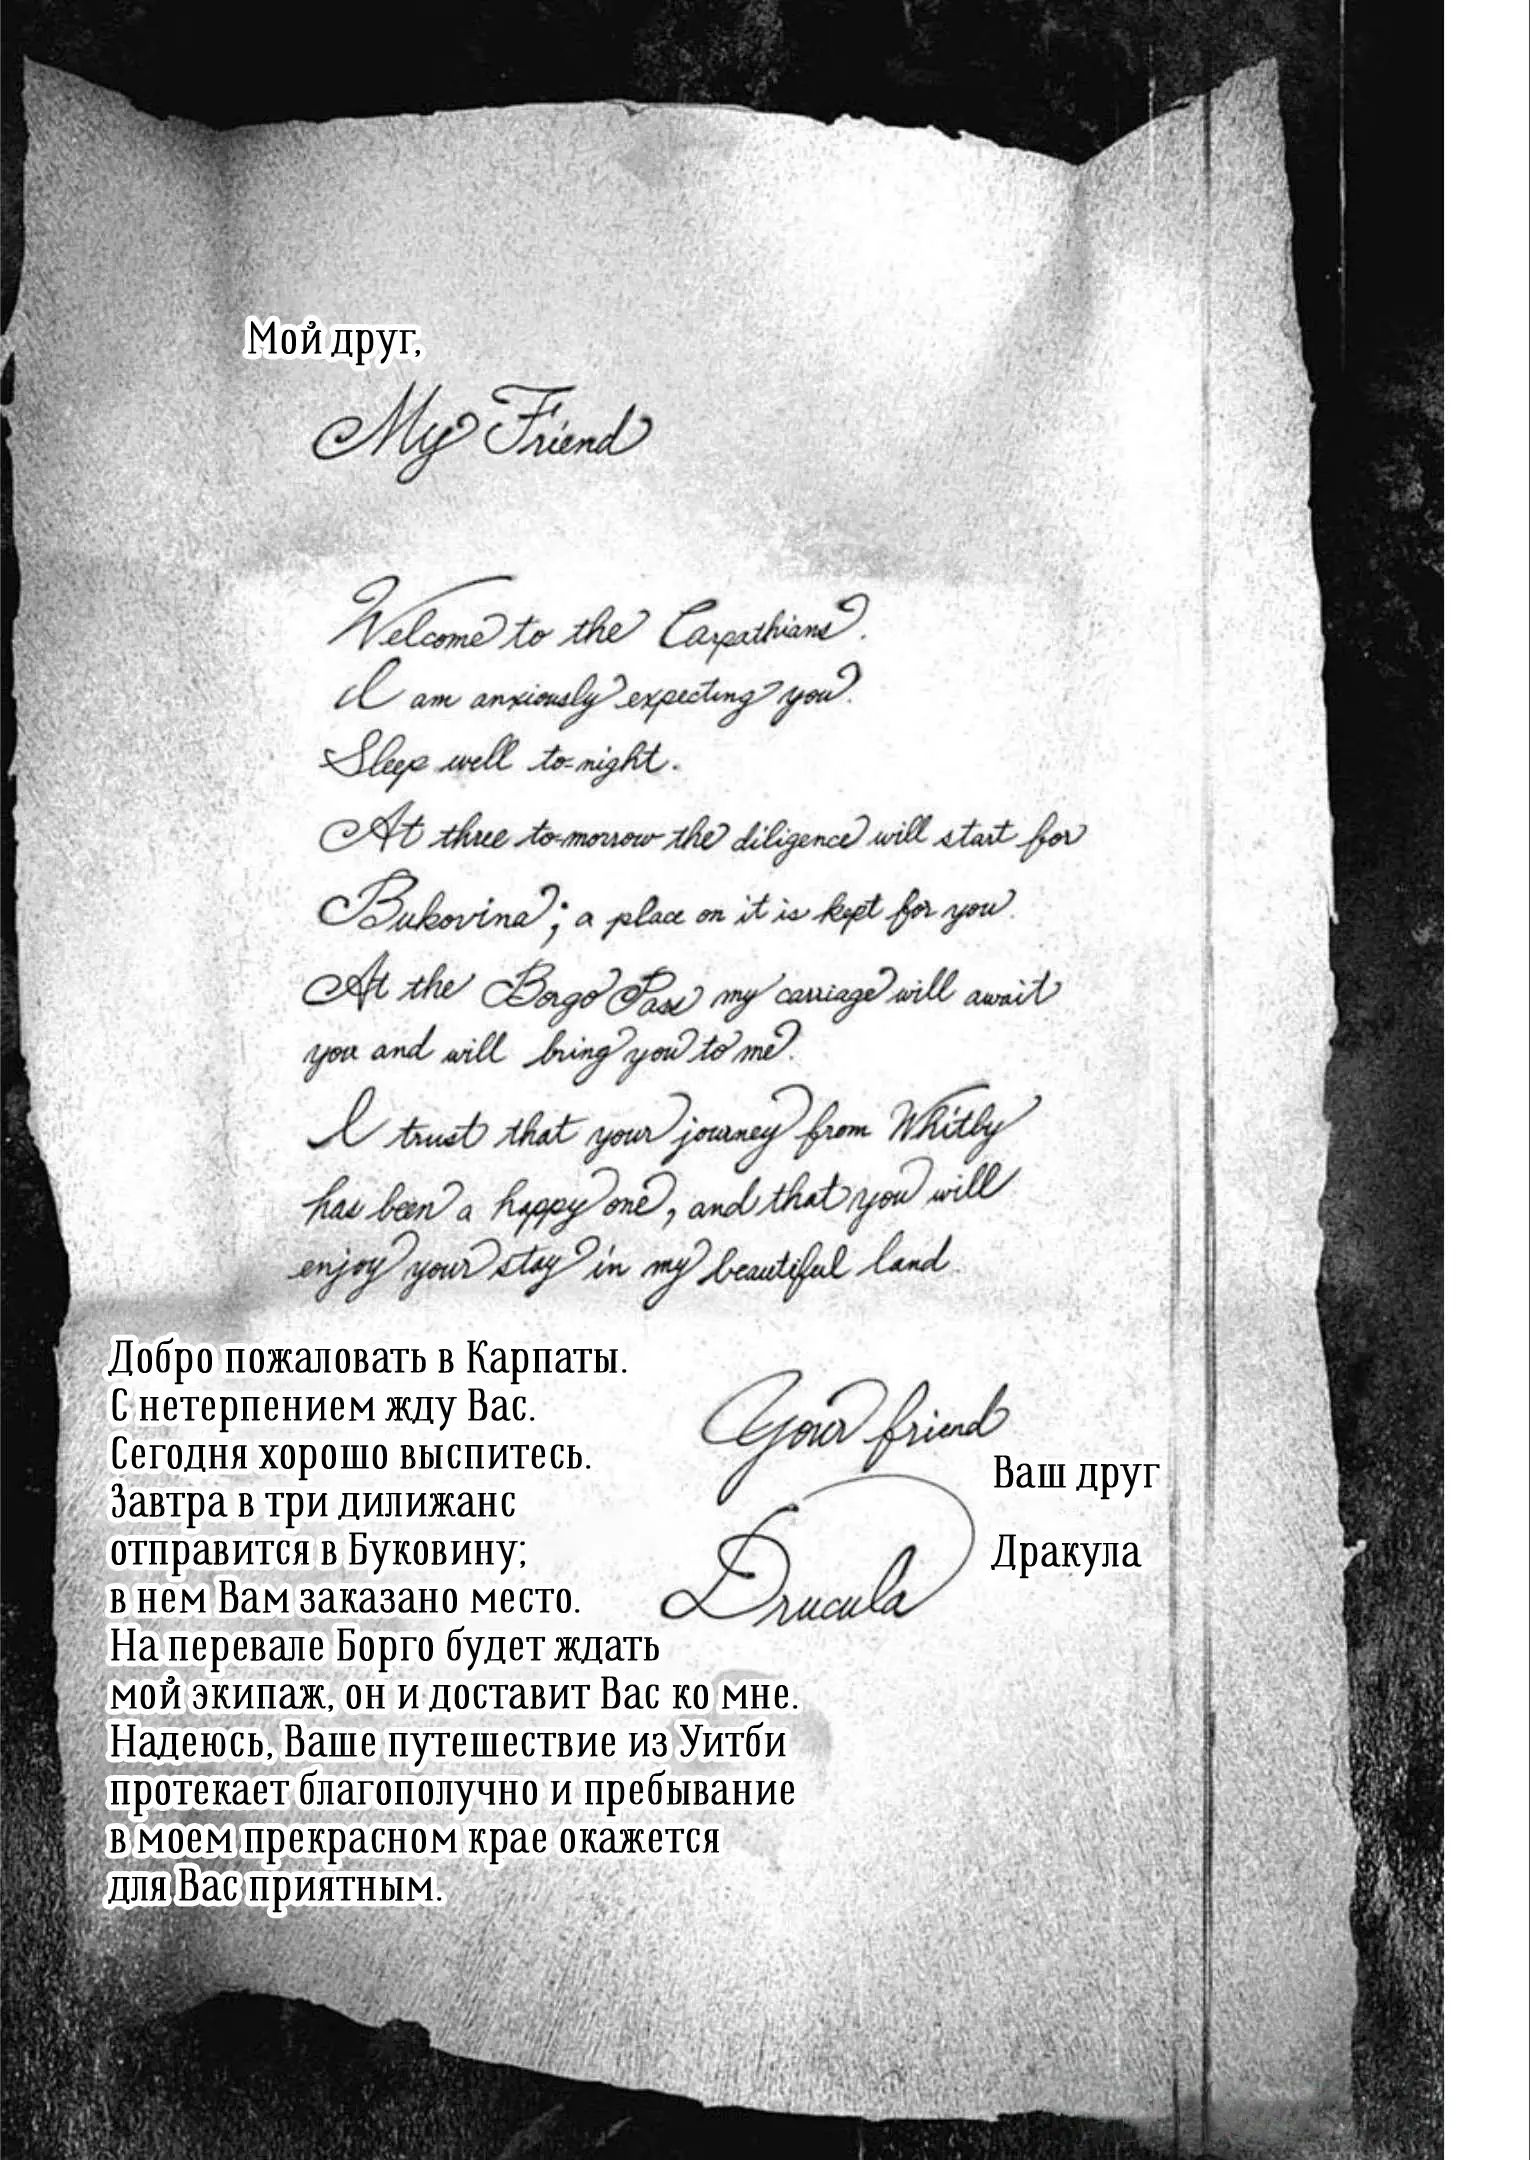 Мой друг,
My Friend
Welcome to the Carpathians.
I am anxiously expecting you.
Sleep well to=night.
At three to=morrow the diligence will start for
Bukovina; a place on it is kept for you.
At the Borgo Pass my carriage will await
you and will bring you to me.
I trust that your journey from Whitby
has been a happy one, and that you will
enjoy your stay in my beautiful land.
Your friend
Dracula
Ваш друг
Дракула
Добро пожаловать в Карпаты.
С нетерпением жду Вас.
Сегодня хорошо выспитесь.
Завтра в три дилижанс
отправится в Буковину;
в нем Вам заказано место.
На перевале Борго будет ждать
мой экипаж, он и доставит Вас ко мне.
Надеюсь, Ваше путешествие из Уитби
протекает благополучно и пребывание
в моем прекрасном крае окажется
для Вас приятным.